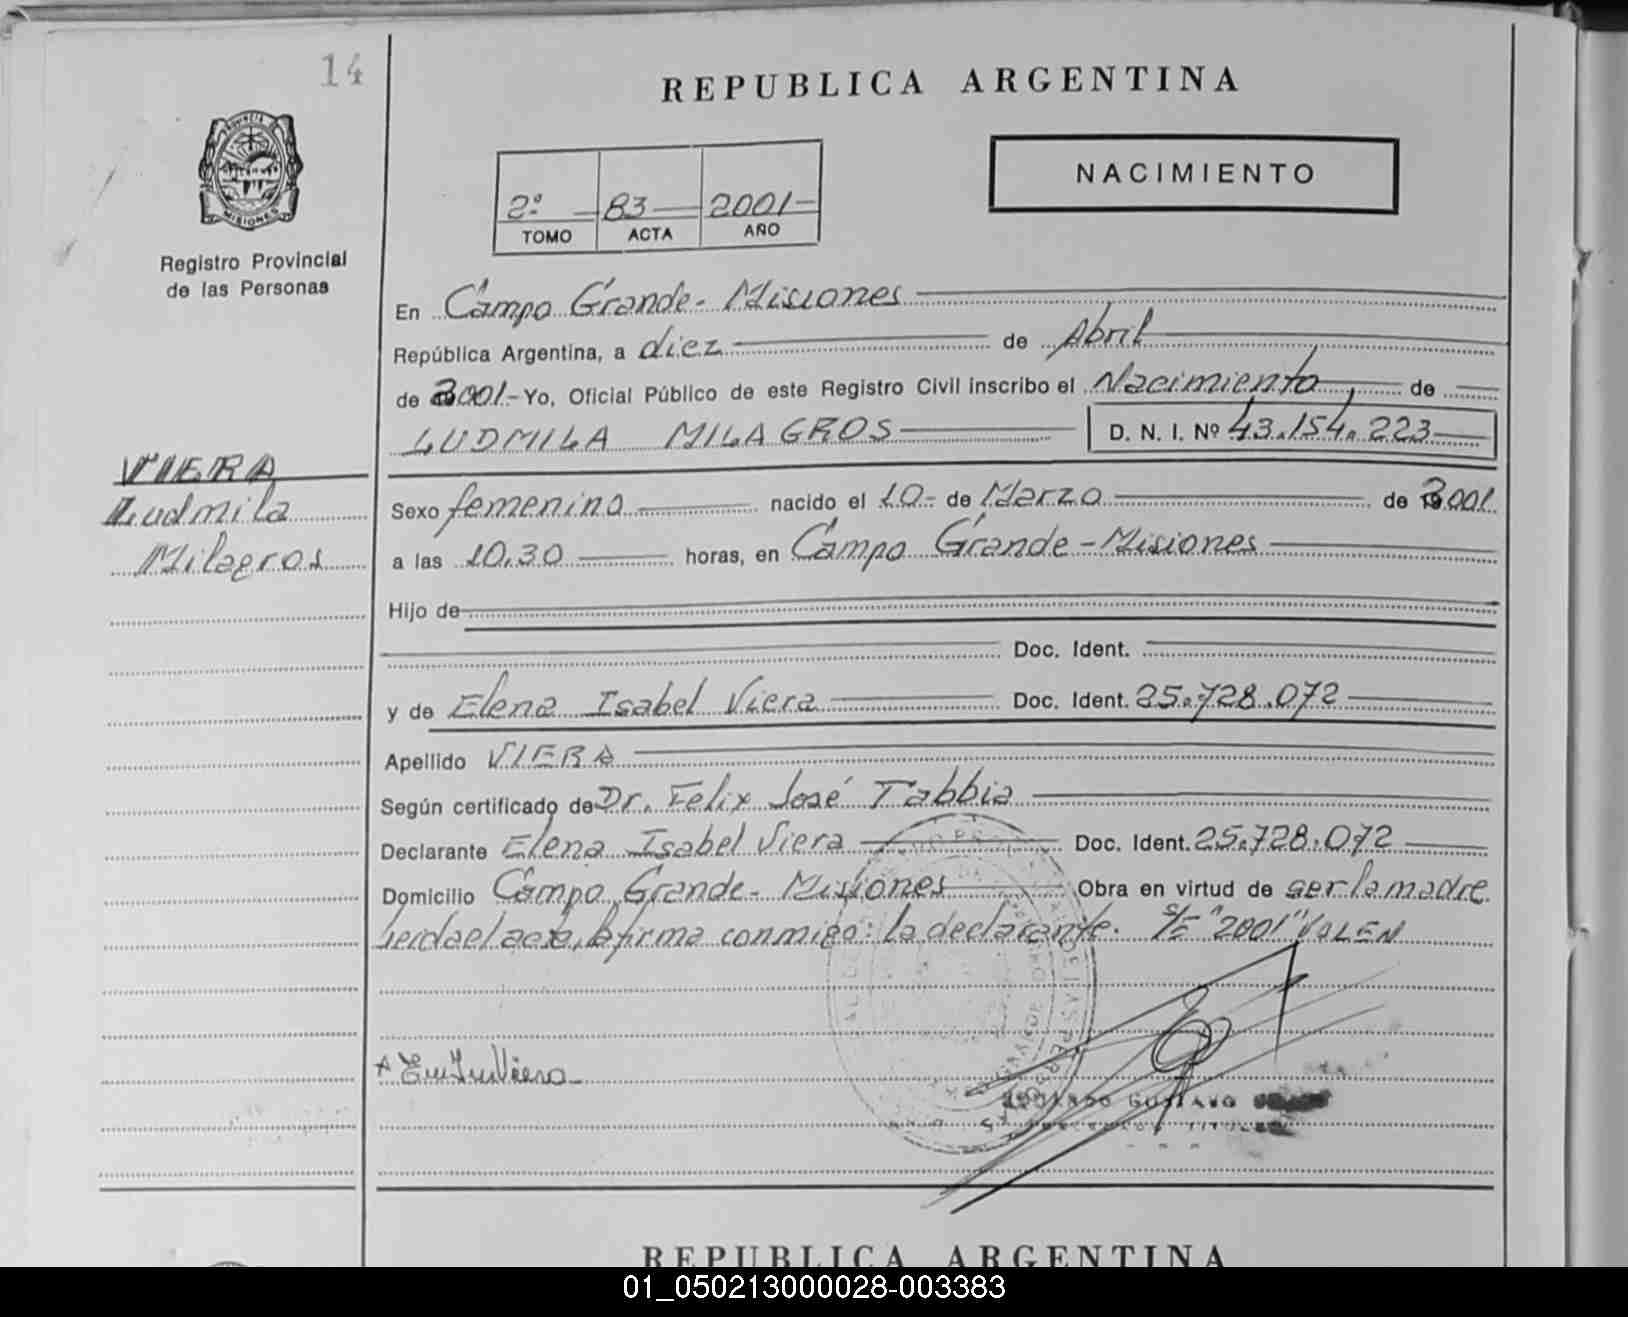 14
REPUBLICA ARGENTINA
NACIMIENTO
PROVINCIA DE
MISIONES
2º 83 2001
TOMO ACTA AÑO
Registro Provincial
de las Personas
En Campo Grande - Misiones
República Argentina, a diez de Abril
de 2001.- Yo, Oficial Público de este Registro Civil inscribo el Nacimiento, de
LUDMILA MILAGROS D. N. I. Nº 43.154.223
VIERA
Ludmila
Milagros
Sexo femenino nacido el 10.- de Marzo de 2001
a las 10,30 horas, en Campo Grande - Misiones
Hijo de
Doc. Ident.
y de Elena Isabel Viera Doc. Ident. 25.728.072
Apellido VIERA
Según certificado de Dr. Felix José Tabbia
Declarante Elena Isabel Viera Doc. Ident. 25.728.072
Domicilio Campo Grande - Misiones Obra en virtud de ser la madre
leida el acta, la firma conmigo: la declarante. S/E "2001" VALEN
Viera
GUSTAVO
TITULAR
REPUBLICA ARGENTINA
01_050213000028-003383